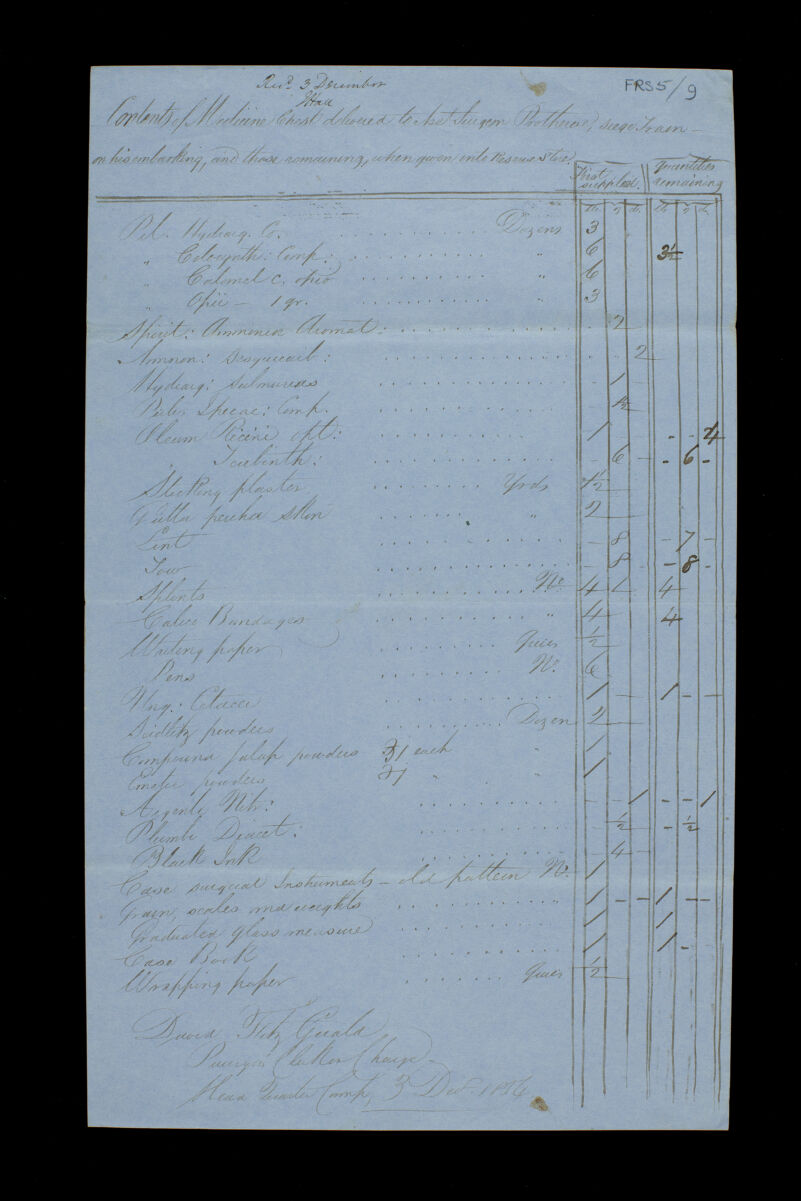 Recd. 3 December
JHall
FRS 5/9
Contents of Medicine Chest delivered to Asst Surgeon Siege Train
on his embarking, and those remaining, when given into Reserve Store.
First supplied. Quantities remaining
lb. ʒ dr. lb. ʒ dr.
Pil. Hydrarg. Co. Dozens 3
" Colocynth: Comp. " 6 3½
" Calomel c. opio " 6
" Opii - 1 gr. " 3
Spirit: Ammoniae Aromat: 2
Ammon: Sesquicarb: 2
Hydrarg: Submurias 1
Pulv. Ipecac: Comp. 1½
Oleum Ricini opt: 1 - - 4
" Terebinth: - 6 - - 6 -
Sticking plaster Yrds 1½
Gutta percha skin " 2
Lint - 8 - 7 -
Tow - 8 - 8 -
Splints No. 4 4
Calico Bandages " 4 4
Writing paper Quires ½
Pens No. 6
Ung: Cetacei 1 - 1 - -
Seidlitz powders Dozen 2
Compound Jalap powders ʒ1 each " 1
Emetic powders ʒ1 " " 1
Argenti Nit: - - 1 - - 1
Plumbi Diacet: ½ - ½
Black Ink - 4 -
Case surgical Instruments - old pattern No. 1
Grain, scales and weights " 1 - - 1 - -
Graduated glass measure 1 1
Case Book 1 1 -
Wrapping paper Quires ½
David Fitz Gerald
Purveyors Clerk in Charge
Head Quarter Camp, 3 Decr.